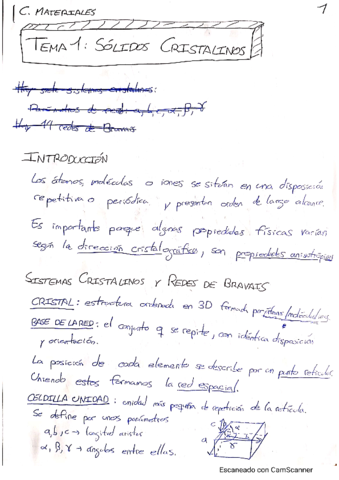 C. MATERIALES
1
TEMA 1: SÓLIDOS CRISTALINOS
Hay siete sistemas cristalinos:
Parámetros de red: a, b, c, α, β, γ
Hay 14 redes de Bravais
INTRODUCCIÓN
Los átomos, moléculas o iones se sitúan en una disposición
repetitiva o periódica y presentan orden de largo alcance.
Es importante porque algunas propiedades físicas varían
según la dirección cristalográfica, son propiedades anisotrópicas
SISTEMAS CRISTALINOS Y REDES DE BRAVAIS
CRISTAL: estructura ordenada en 3D formada por
BASE DE LA RED: el conjunto q se repite, con idéntica disposición
y orientación.
La posición de cada elemento se describe por un punto reticular
Uniendo estos formamos la red espacial.
CELDILLA UNIDAD: unidad más pequeña de repetición de la retícula.
Se define por unos parámetros
a, b, c → longitud aristas
α, β, γ → ángulos entre ellas.
c
α
a
γ
Escaneado con CamScanner